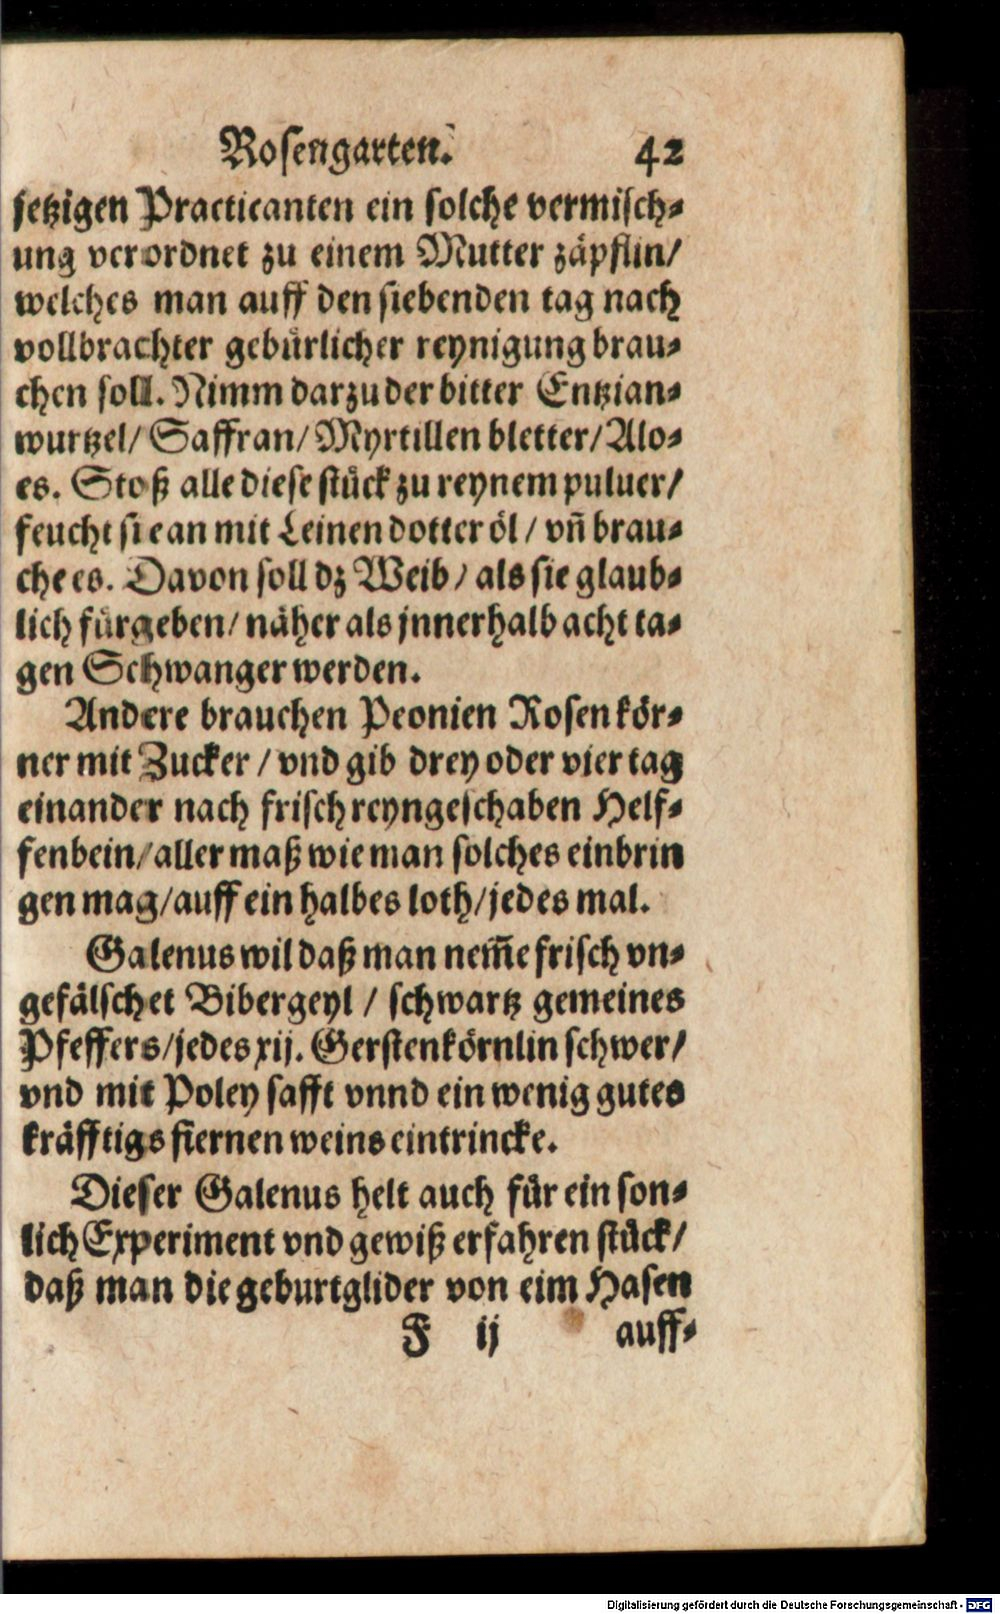 Rosengarten. 42
jetzigen Practicanten ein solche vermisch⸗
ung verordnet zu einem Mutter zäpflin/
welches man auff den siebenden tag nach
vollbrachter gebürlicher reynigung brau⸗
chen soll. Nimm darzu der bitter Entzian⸗
wurtzel/ Saffran/ Myrtillen bletter/ Alo⸗
es. Stoß alle diese stück zu reynem puluer/
feucht sie an mit Leinendotter öl / vñ brau⸗
che es. Davon soll dz Weib / als sie glaub⸗
lich fürgeben/ näher als jnnerhalb acht ta⸗
gen Schwanger werden.
Andere brauchen Peonien Rosenkör⸗
ner mit Zucker / vnd gib drey oder vier tag
einander nach frisch reyngeschaben Helf⸗
fenbein/ aller maß wie man solches einbrin
gen mag/ auff ein halbes loth/ jedes mal.
Galenus wil daß man nem̃e frisch vn⸗
gefälschet Bibergeyl / schwartz gemeines
Pfeffers/ jedes xij. Gerstenkörnlin schwer/
vnd mit Poley safft vnnd ein wenig gutes
kräfftigs fiernen weins eintrincke.
Dieser Galenus helt auch für ein son⸗
lich Experiment vnd gewiß erfahren stück/
daß man die geburtglider von eim Hasen
F ij auff⸗
Digitalisierung gefördert durch die Deutsche Forschungsgemeinschaft - DFG